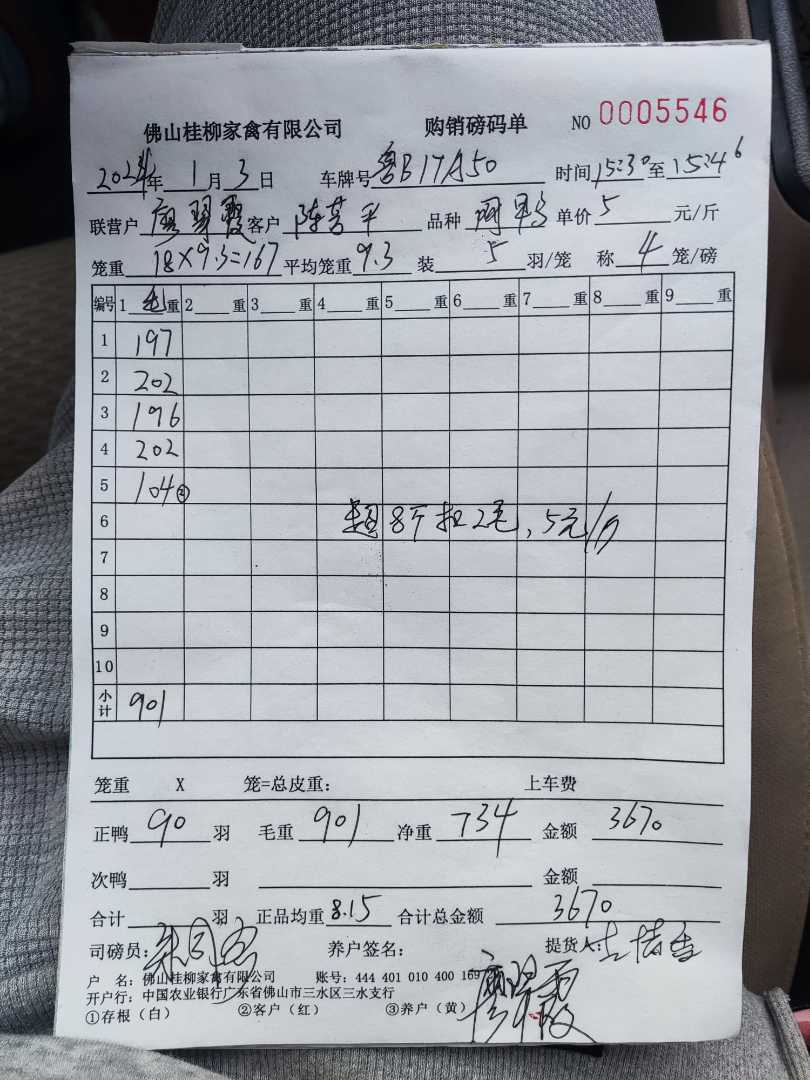 佛山桂柳家禽有限公司 购销磅码单 NO 0005546
2024年 1月 3日 车牌号 鲁B17A50 时间 15:30 至 15:246
联营户 廖翠霞 客户 品种 单价 5 元/斤
笼重 18×9.3=167 平均笼重 9.3 装 5 羽/笼 称 4 笼/磅
编号 1 毛 重 2 重 3 重 4 重 5 重 6 重 7 重 8 重 9 重
1 197
2 202
3 196
4 202
5 104②
6 超8斤扣2毛,5元/斤
7
8
9
10
小计 901
笼重 X 笼=总皮重: 上车费
正鸭 90 羽 毛重 901 净重 734 金额 3670
次鸭 羽 金额
合计 羽 正品均重 8.15 合计总金额 3670
司磅员: 养户签名: 提货人:
廖翠霞
户 名: 佛山桂柳家禽有限公司 账号: 444 401 010 400 169
开户行: 中国农业银行广东省佛山市三水区三水支行
①存根(白) ②客户(红) ③养户(黄)